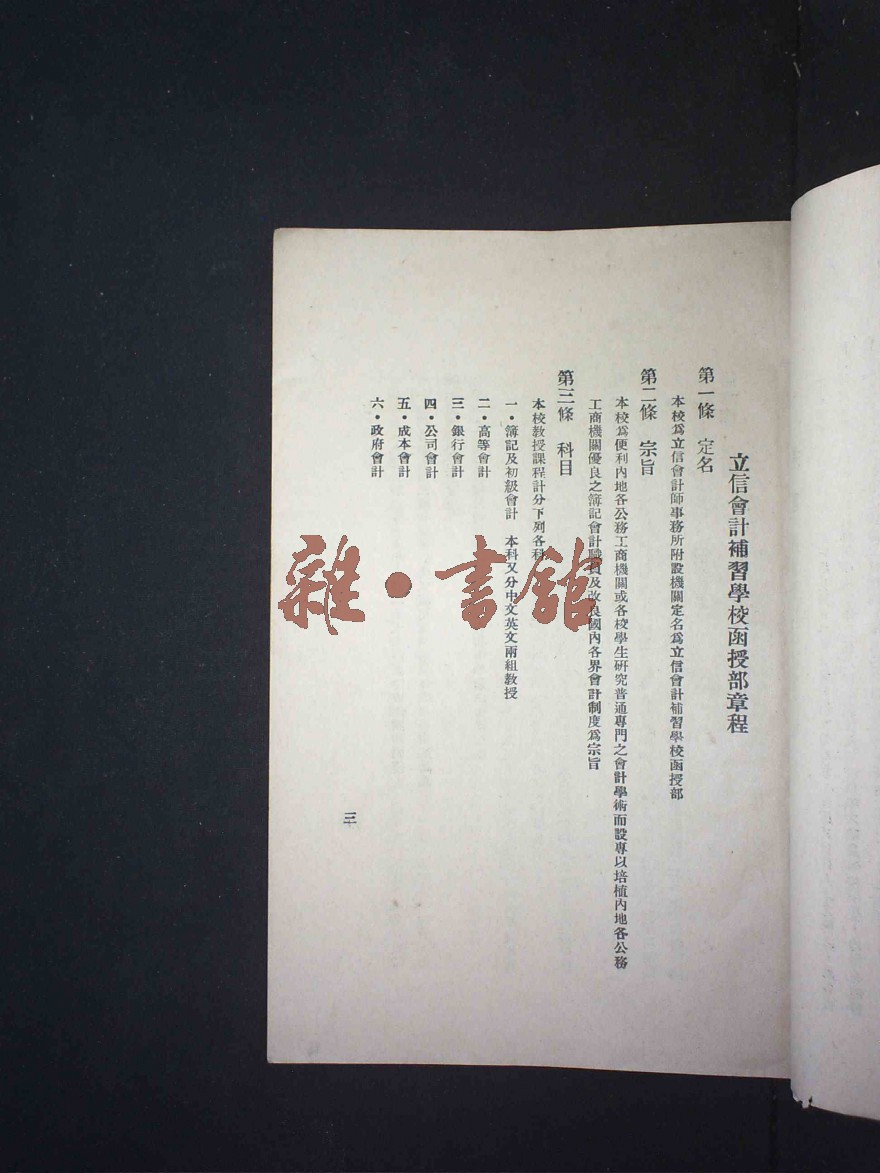 立信會計補習學校函授部章程
第一條　定名
本校爲立信會計師事務所附設機關定名爲立信會計補習學校函授部
第二條　宗旨
本校爲便利內地各公務工商機關或各校學生研究普通專門之會計學術而設專以培植內地各公務
工商機關優良之簿記會計職員及改良國內各界會計制度爲宗旨
第三條　科目
本校教授課程計分下列各科
一・簿記及初級會計　本科又分中文英文兩組教授
二・高等會計
三・銀行會計
四・公司會計
五・成本會計
六・政府會計
三
雜・書館